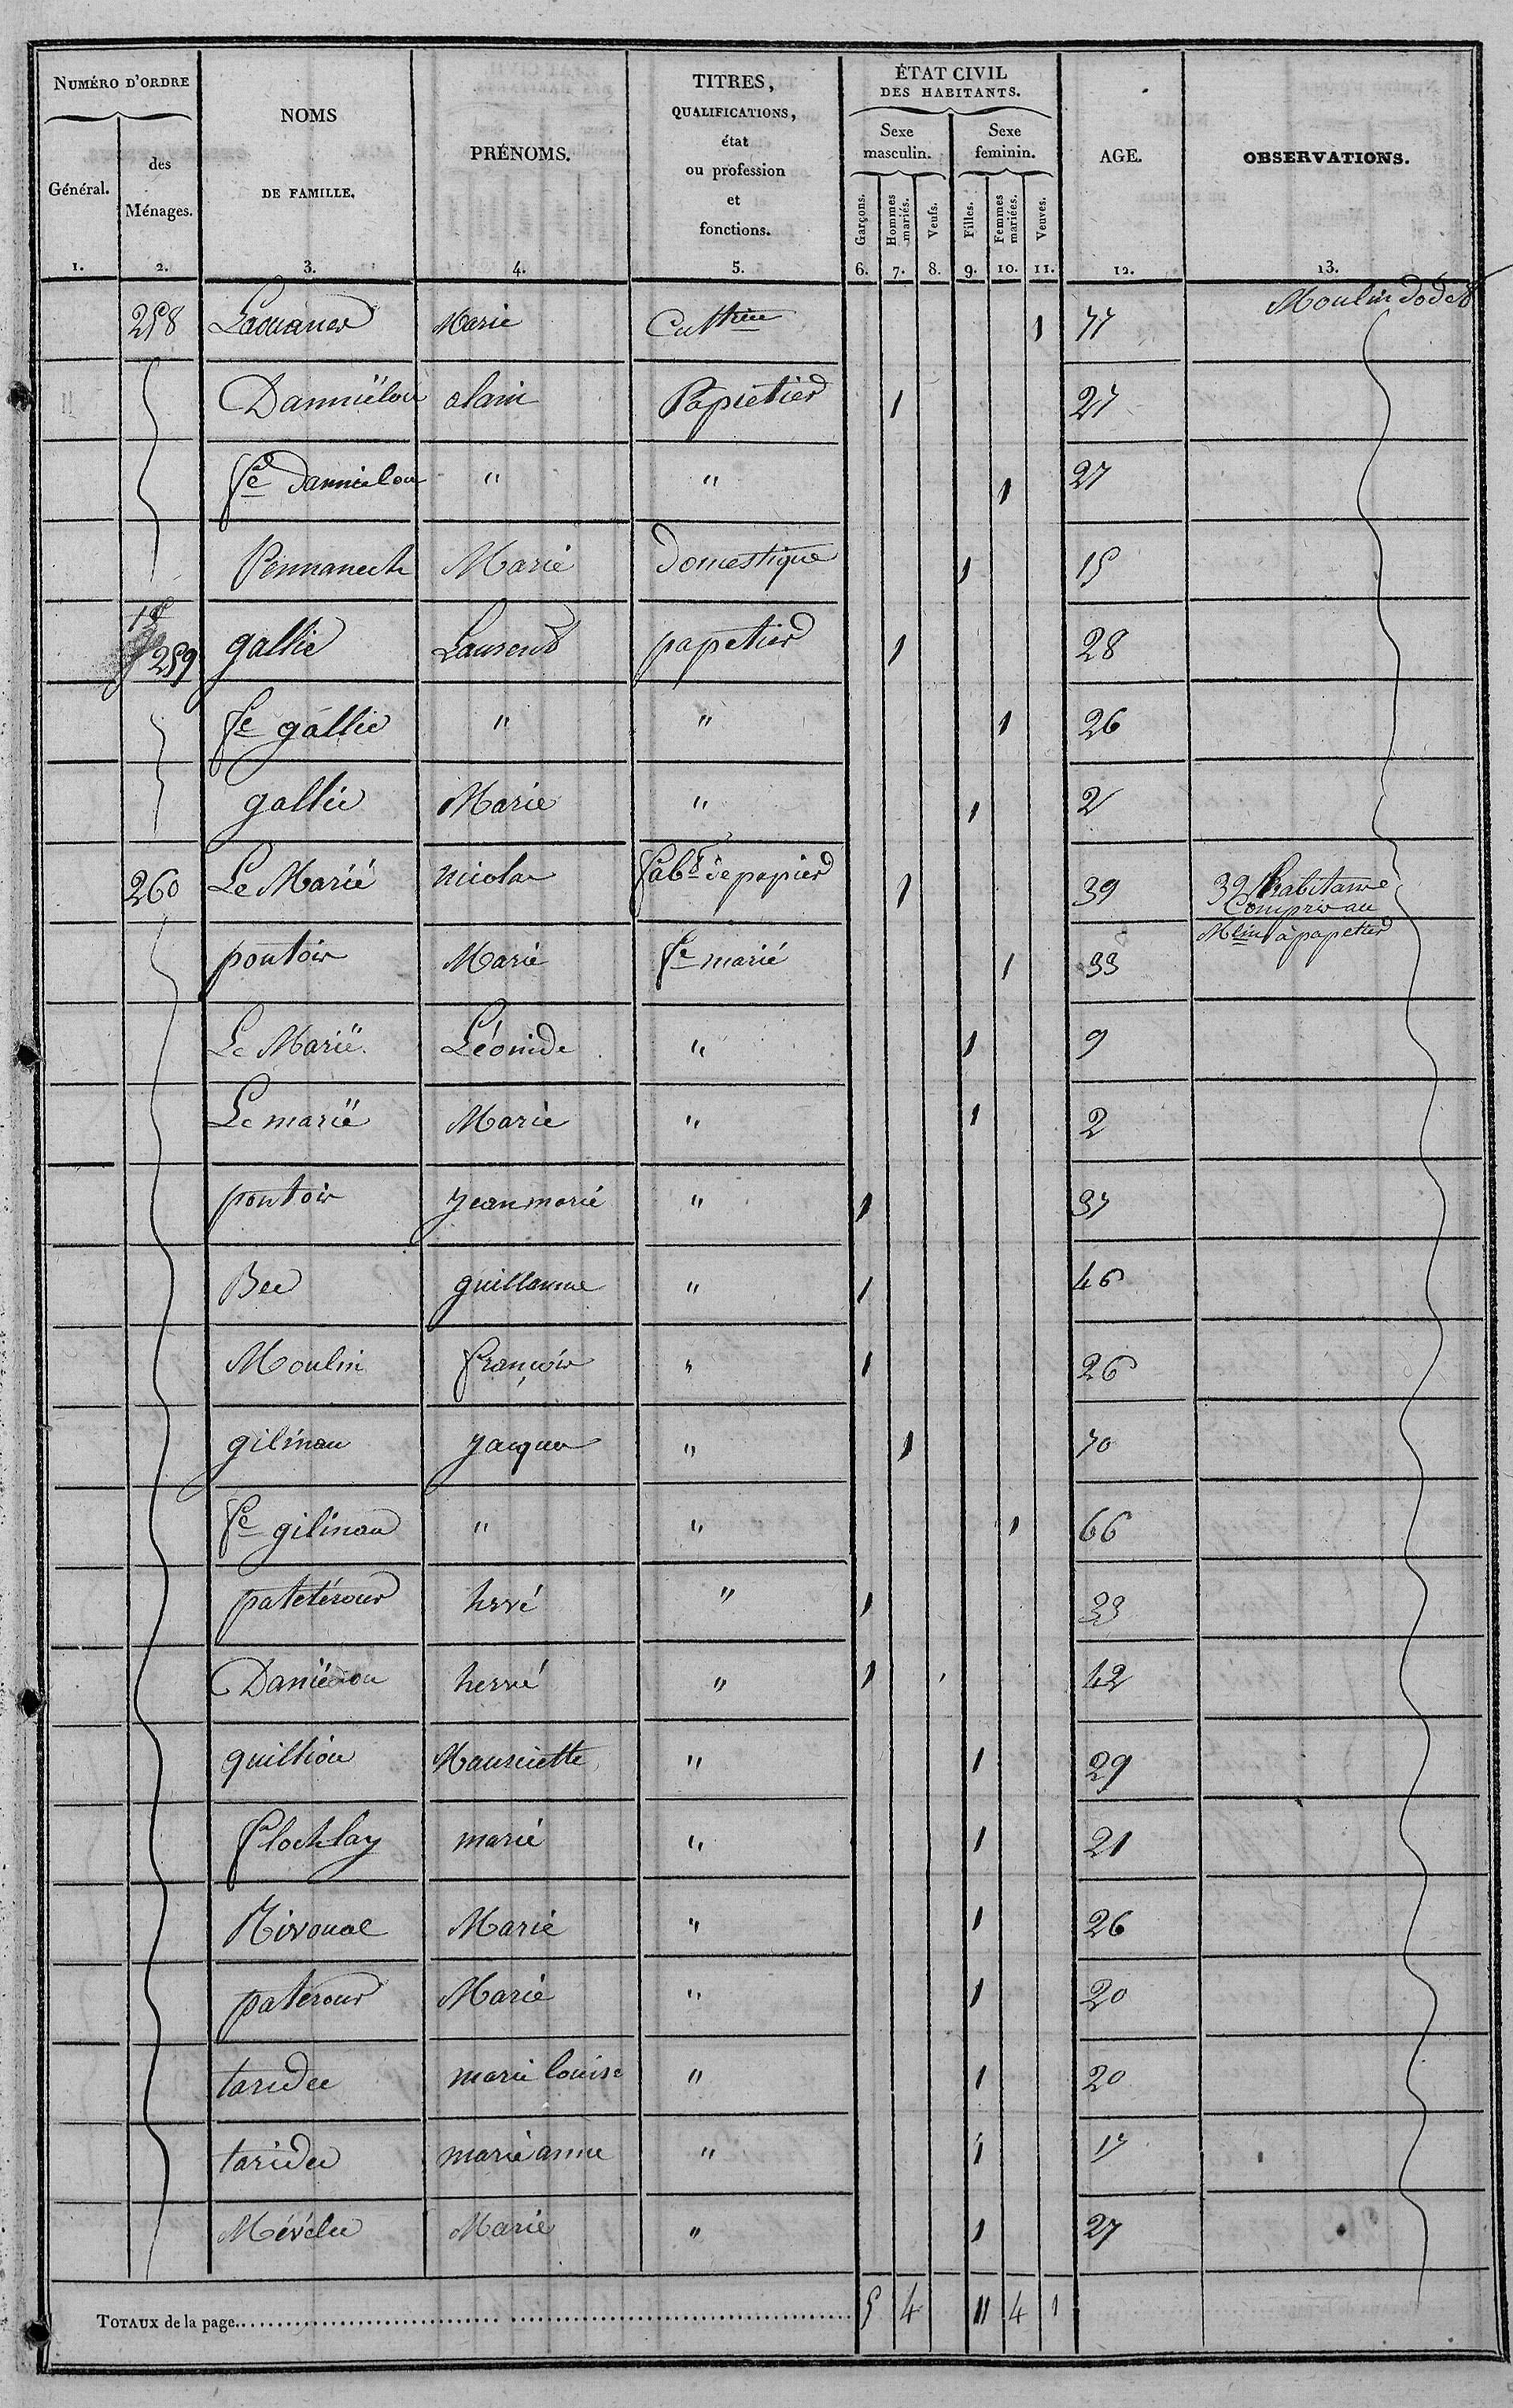 NUMÉRO D'ORDRE
Général.
des Ménages.
NOMS
DE FAMILLE.
PRÉNOMS.
TITRES,
QUALIFICATIONS,
état
ou profession
et
fonctions.
ÉTAT CIVIL
DES HABITANTS.
Sexe masculin.
Sexe feminin.
Garçons.
Hommes mariés.
Veufs.
Filles.
Femmes mariées.
Veuves.
AGE.
OBSERVATIONS.
1. 2. 3. 4. 5. 6. 7. 8. 9. 10. 11. 12. 13.
258 Marie 1 77 Moulin
Danniélou alain Papietier 1 27
fe danniélou " " 1 27
Pennanech Marie Domestique 1 15
259 gallic Laurent papetier 1 28
fe gallic " " 1 26
gallic Marie " 1 2
260 Le Marié nicolas fabt de papier 1 39 32 habitans
Compris au
Mlin à papetier
pontois Marie fe marié 1 33
Le Marié Léonide " 1 9
Le marié Marie " 1 2
pontois jean marie " 1 37
Bec guillaume " 1 46
Moulin françois " 1 26
gilinau jacques " 1 70
fe gilinau " " 1 66
patetérour hervé " 1 33
Daniélou hervé " 1 42
quilliou Mauricette " 1 29
flochlay marie " 1 21
Rivoual Marie " 1 26
paterour Marie " 1 20
taridec marie louise " 1 20
taridec marie anne " 1 17
Mévélec Marie " 1 27
TOTAUX de la page 5 4 11 4 1